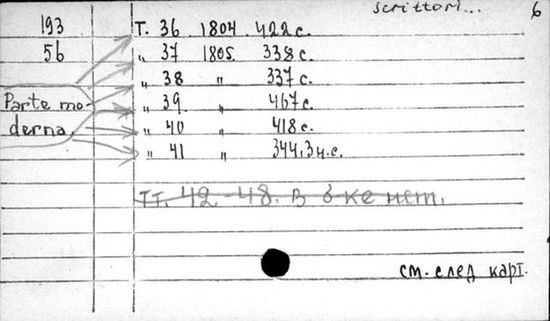 scrittori... 6
193 T. 36 1804 422 с.
56 " 37 1805. 338 с.
" 38 " 337 с.
Parte mo- " 39 " 467 с.
derna, " 40 " 418 с.
" 41 " 344, 3 н.с.
ТТ. 42-48. В б-ке нет.
см. след карт.